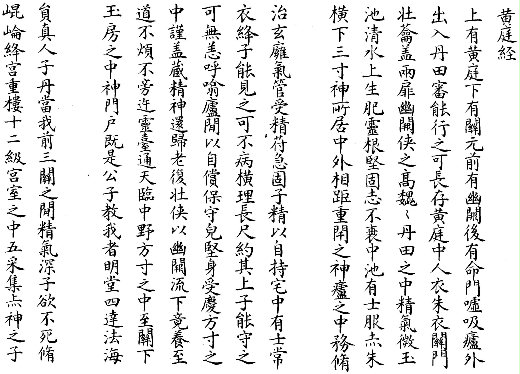 黃庭経
上有黃庭下有關元前有幽闕後有命門噓吸廬外
出入丹田審能行之可長存黃庭中人衣朱衣關門
壯籥盖兩扉幽闕俠之髙魏〻丹田之中精氣微玉
池清水上生肥靈根堅固志不衰中池有士服赤朱
橫下三寸神所居中外相距重閇之神廬之中務脩
治玄廱氣管受精符急固子精以自持宅中有士常
衣絳子能見之可不病橫理長尺約其上子能守之
可無恙呼噏廬閒以自償保守皃堅身受慶方寸之
中謹盖藏精神還歸老復壯俠以幽闕流下竟養至
道不煩不旁迕靈臺通天臨中野方寸之中至關下
玉房之中神門户既是公子敎我者明堂四達法海
負真人子丹當我前三關之閒精氣深子欲不死脩
崐崘絳宫重樓十二級宫室之中五采集赤神之子